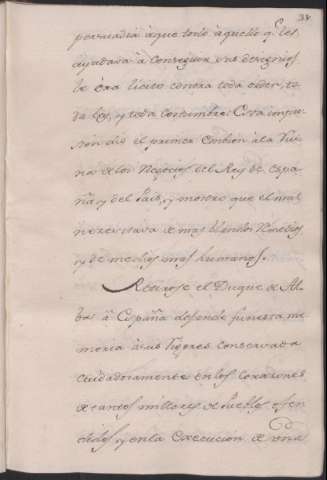 38
persuadia à que todo aquello q.e les
ayudava à conseguir sus designios
le era licito contra toda orden, to-
da ley, y toda costumbre. Esta
dió el primer embion à la Rui-
na de los Negocios del Rey de Espa-
ña, y del Pais, y mostro que el mal
necesitava de mas blandos Remedios,
y de medios mas humanos.
Retirose el Duque de Al-
ba à España dejando funesta me-
moria à sus Rigores conservada
cuidadosamente en los corazones
de tantos millares de Pueblos ofen-
didos, y en la execucion de una